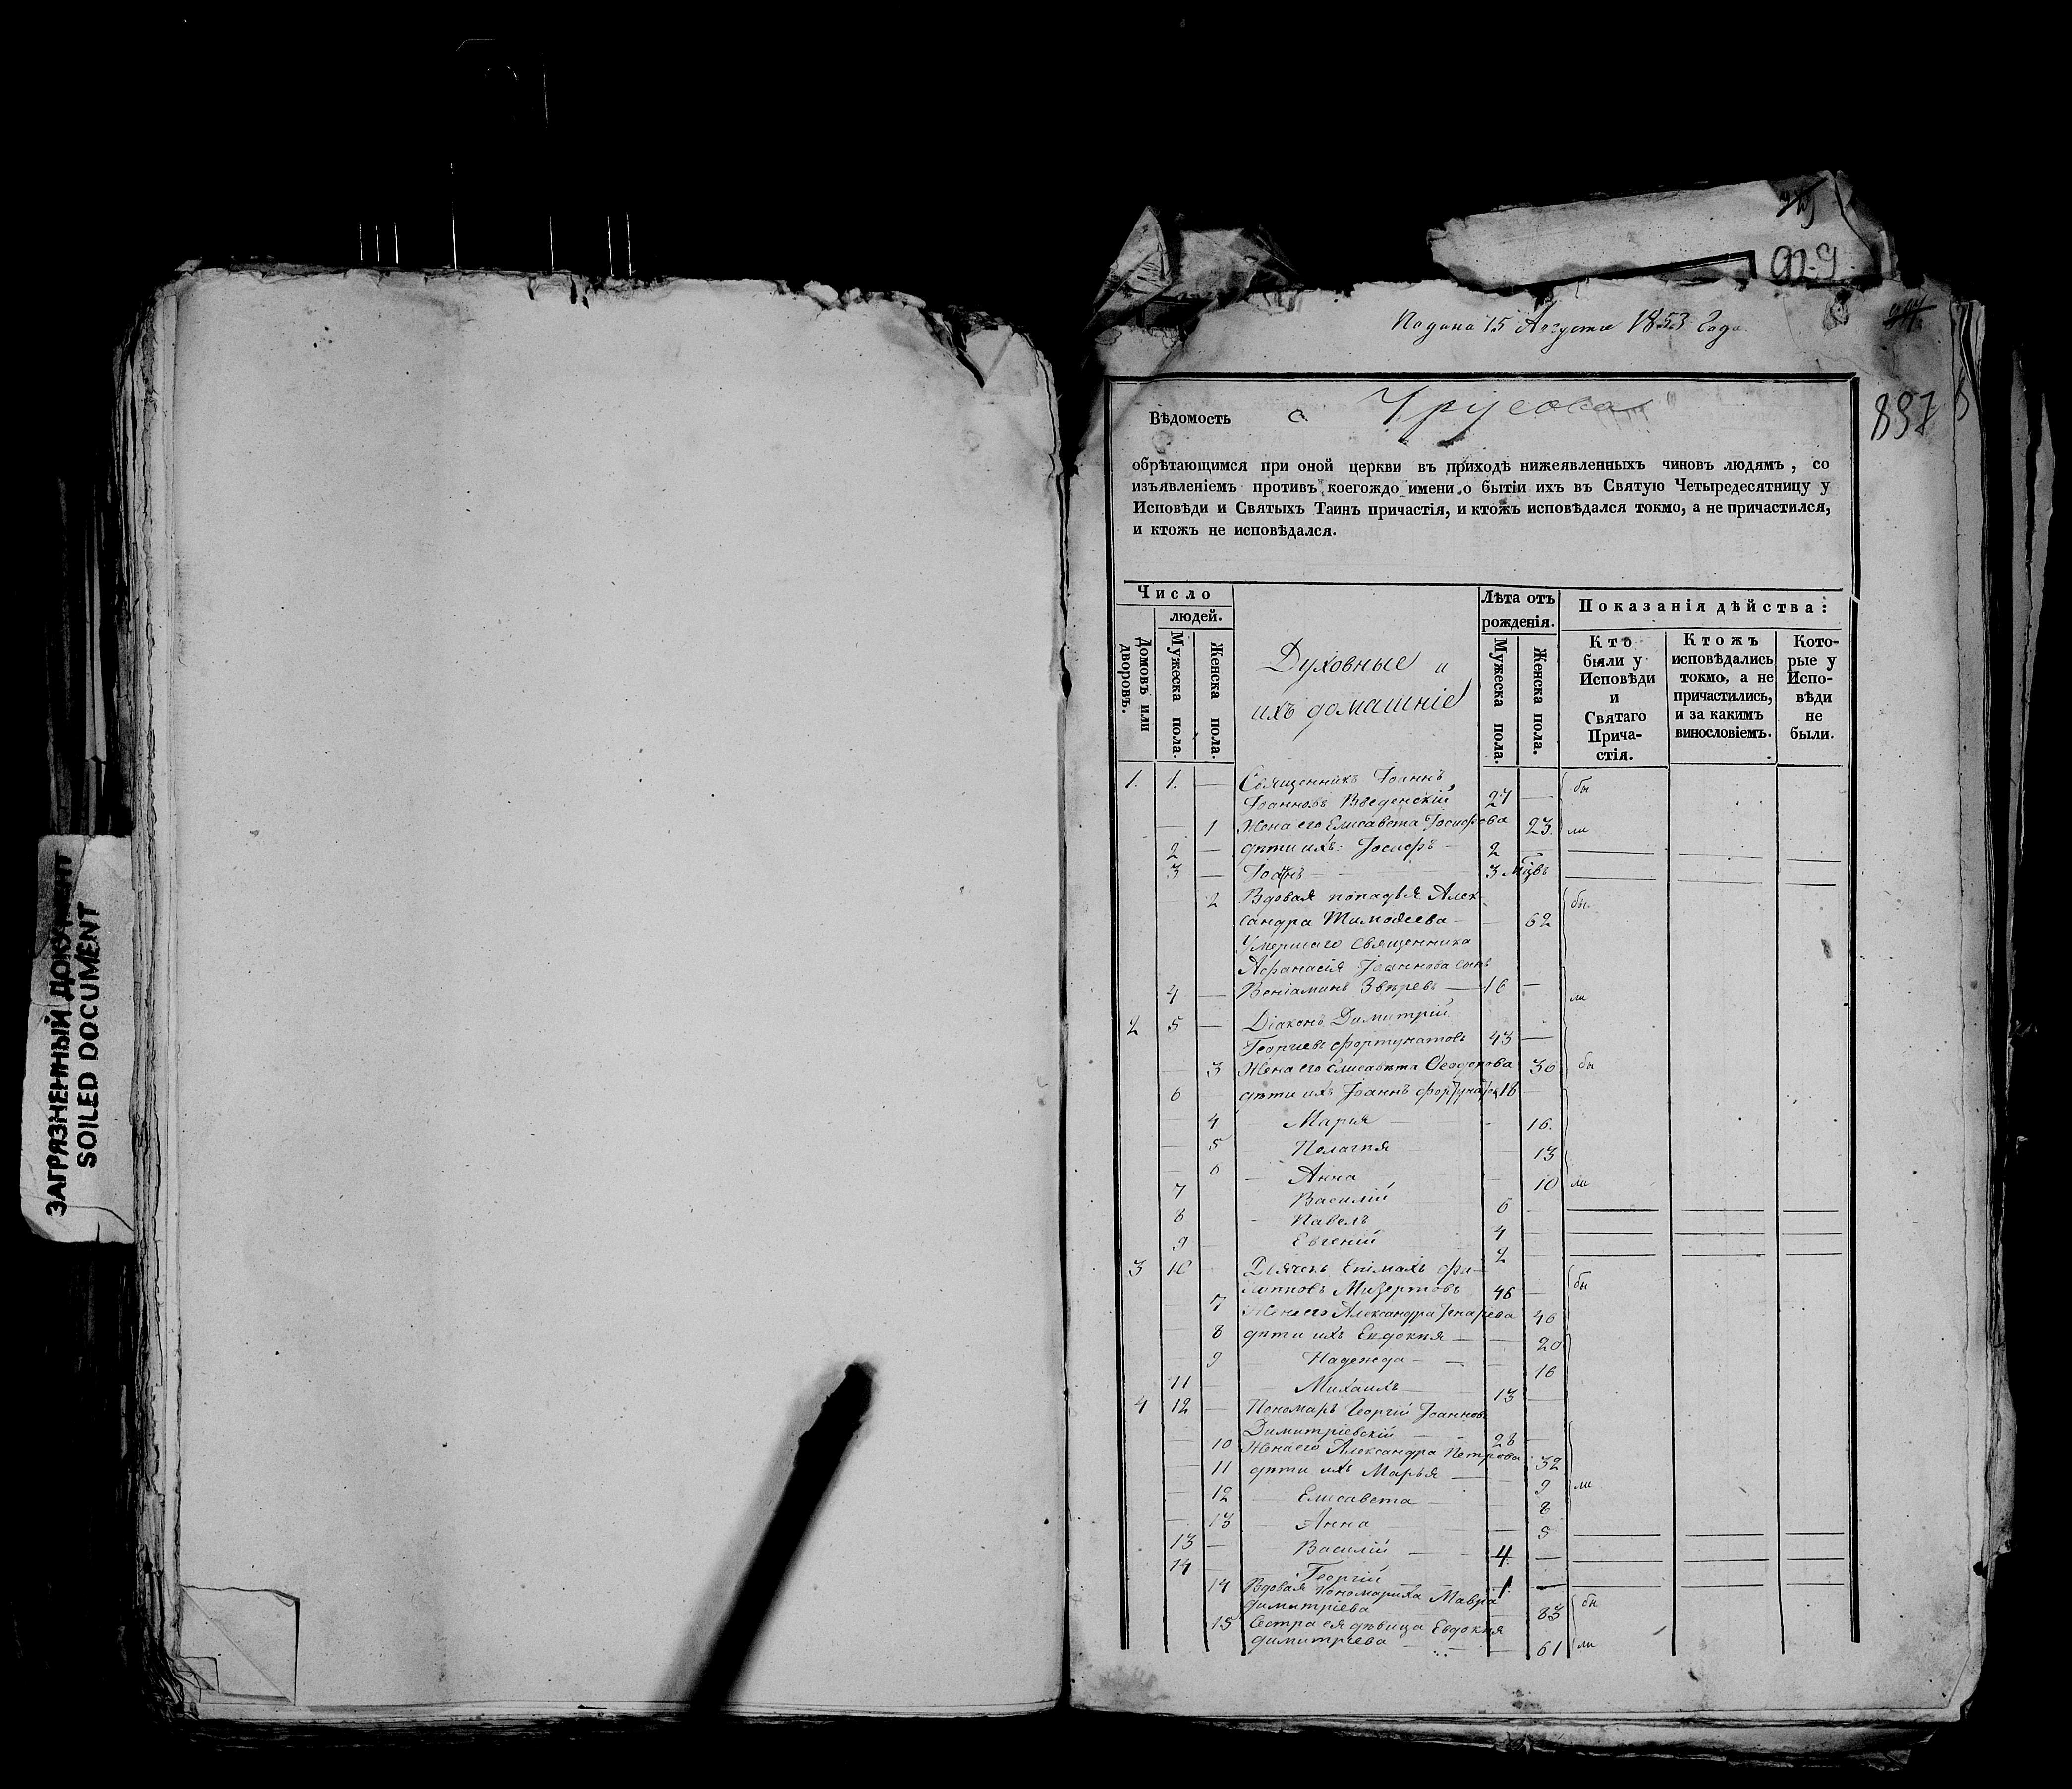 ЗАГРЯЗНЕННЫЙ ДОКУМЕНТ
SOILED DOCUMENT
929
Подана 15 Августа 1853 Года
897
Вѣдомость с
обрѣтающимся при оной церкви въ приходѣ нижеявленныхъ чиновъ людямъ, со
изъявленіемъ противъ коегождо имени о бытіи ихъ въ Святую Четыредесятницу у
Исповѣди и Святыхъ Таинъ причастія, и ктожъ исповѣдался токмо, а не причастился,
и ктожъ не исповѣдался.
Число
людей.
Домовъ или дворовъ.
Мужеска пола.
Женска пола.
Духовные и
ихъ домашніе
Лѣта отъ рожденія.
Мужеска пола.
Женска пола.
Показанія дѣйства:
Кто были у Исповѣди и Святаго Прича-стія.
Ктожъ исповѣдались токмо, а не причастились, и за какимъ винословіемъ.
Кото-рые у Испо-вѣди не были.
1. 1. — Священникъ Іоаннъ бы
Іоанновъ Введенскій 27 —
— 1 Жена его Елисавета Іосифова 23. ли
2 — дѣти ихъ: Іосифъ — 2 —
3 — Іоаннъ 3 мцвъ
2 Вдовая попадья Алек- бы
сандра Тимоѳеева — 62
Умершаго священника
Афанасія Іоаннова сынъ
4 — Веніаминъ Звѣревъ — 16 — ли
2 5 — Діаконъ Димитрій
Георгіевъ Фортунатовъ 43 —
— 3 Жена его Елисавета Ѳеодорова 36 бы
6 дѣти ихъ Іоаннъ 18 —
4 Марья 16.
5 Пелагія 13
6 Анна 10 ли
7 Василій 6
8 Павелъ 4
9 Евгеній 2
3 10 Дьячекъ Епімахъ Фи- бы
липповъ Мизертовъ 46
7 Жена его Александра 46
8 дѣти ихъ Евдокія — 20
9 Надежда — 16
11 Михаилъ 13
4 12 — Пономарь Георгій Іоанновъ
Димитріевскій 28
10 Жена его Александра Петрова 32
11 дѣти ихъ Марья — 9 ли
12 Елисавета — 8
13 Анна 5
13 — Василій — 4. —
14 Георгій 1.
14 Вдовая Пономариха Мавра бы
Димитріева 83
15 Сестра ея дѣвица Евдокія
Димитріева — 61 ли